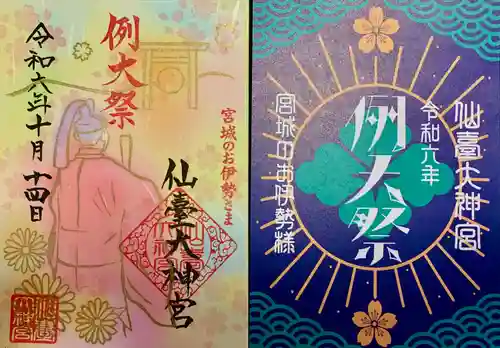 例大祭
宮城のお伊勢さま
仙臺大神宮
令和六年十月十四日
仙臺大神宮
令和六年
例大祭
宮城のお伊勢様